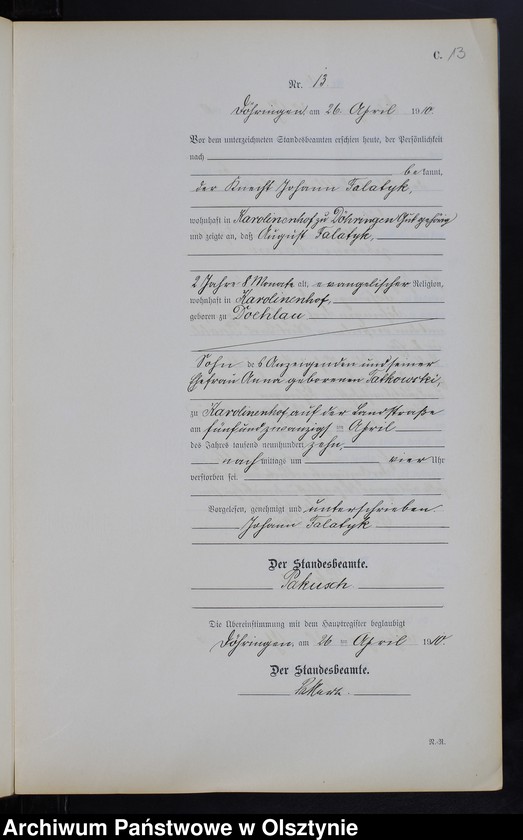 C. 13
Nr. 13.
Döhringen, am 26 April 1910.
Vor dem unterzeichneten Standesbeamten erschien heute, der Persönlichkeit
nach
bekannt,
der Knecht Johann Talatyk,
wohnhaft in Karolinenhof zu Döhringen Gut gehörig
und zeigte an, daß August Talatyk,
2 Jahre 8 Monate alt, evangelischer Religion,
wohnhaft in Karolinenhof,
geboren zu Doehlau
Sohn des Anzeigenden und seiner
Ehefrau Anna geborenen Fatkowski,
zu Karolinenhof auf der Landstraße
am fünfundzwanzigsten April
des Jahres tausend neunhundert zehn,
nach mittags um vier Uhr
verstorben sei.
Vorgelesen, genehmigt und unterschrieben.
Johann Talatyk
Der Standesbeamte.
Pakusch
Die Übereinstimmung mit dem Hauptregister beglaubigt
Döhringen, am 26 April 1910.
Der Standesbeamte.
N.-R.
Archiwum Państwowe w Olsztynie